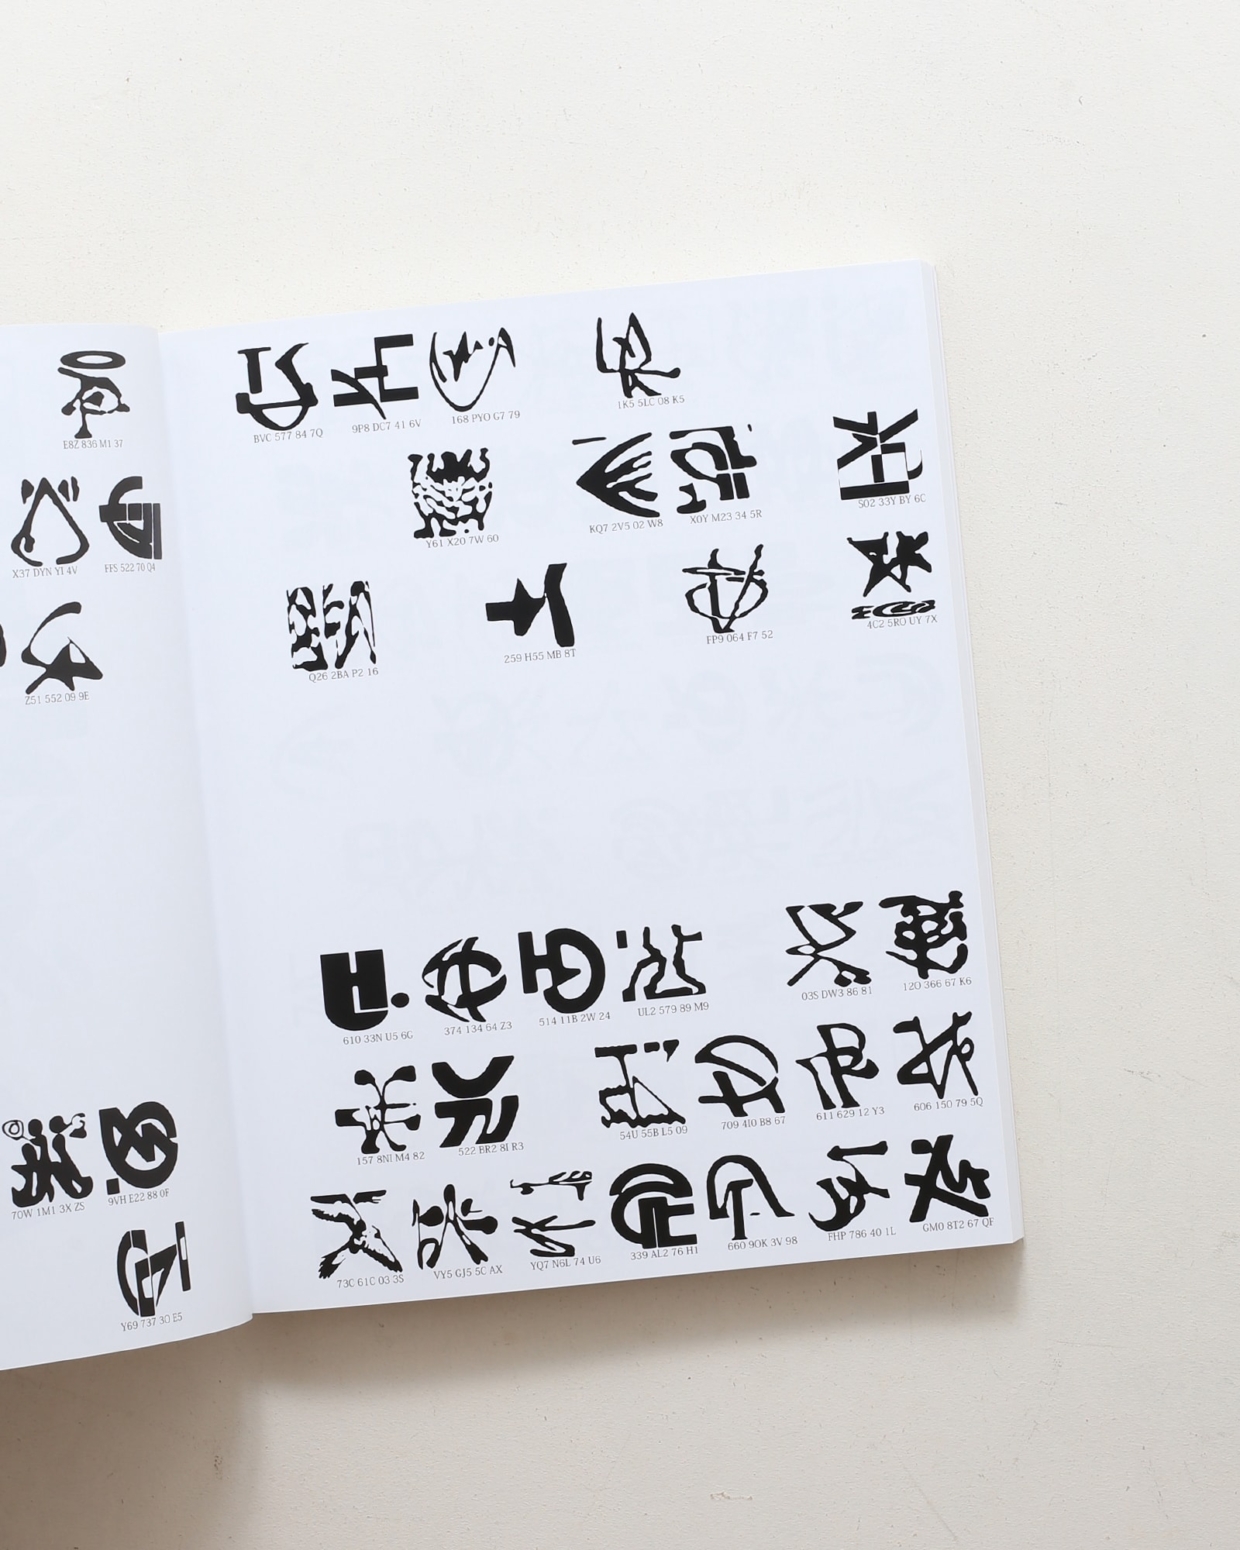 E8Z 836 M1 37
X37 DYN YI 4V
FFS 522 70 Q4
Z51 552 09 9E
70W 1M1 3X ZS
9VH E22 88 0F
Y69 737 30 E5
BVC 577 84 7Q
9P8 DC7 41 6V
168 PYO G7 79
1K5 5LC 08 K5
Y61 X20 7W 60
KQ7 2V5 02 W8
X0Y M23 34 5R
502 33Y BY 6C
Q26 2BA P2 16
259 H55 MB 8T
FP9 064 F7 52
4C2 5RO UY 7X
610 33N U5 6G
374 134 64 Z3
514 11B 2W 24
UL2 579 89 M9
03S DW3 86 81
12O 366 67 K6
157 8NI M4 82
522 BR2 8I R3
54U 55B L5 09
709 4I0 B8 67
611 629 12 Y3
606 150 79 5Q
73C 61C 03 3S
VY5 GJ5 5C AX
YQ7 N6L 74 U6
339 AL2 76 H1
660 9OK 3V 98
FHP 786 40 1L
GM0 8T2 67 QF